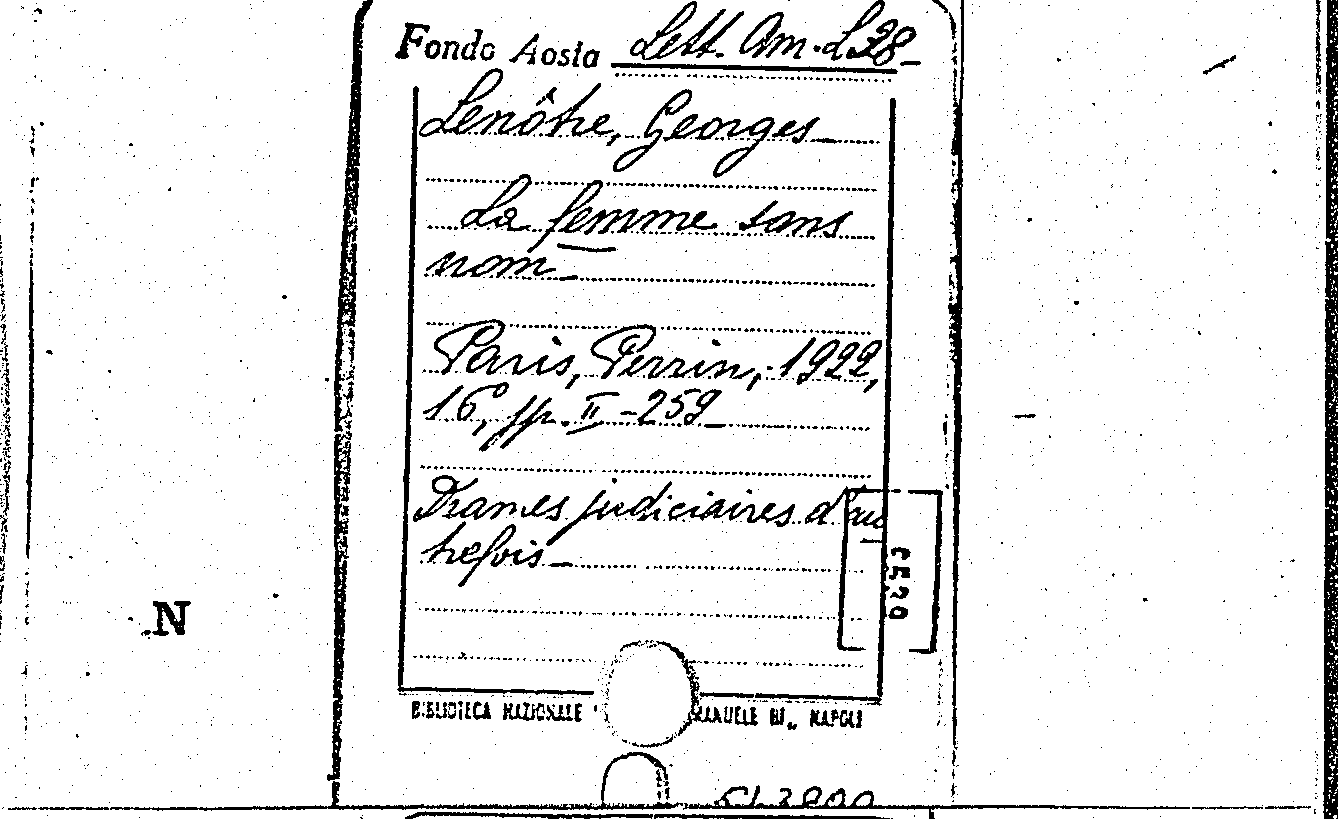 Fondo Aosta Lett. Am. L 28-
Lenôtre, Georges
La femme sans
nom-
Paris, Perrin, 1922,
16°, pp. II-259
Drames judiciaires d'au
trefois-
N
BIBLIOTECA NAZIONALE MANUELE III„ NAPOLI